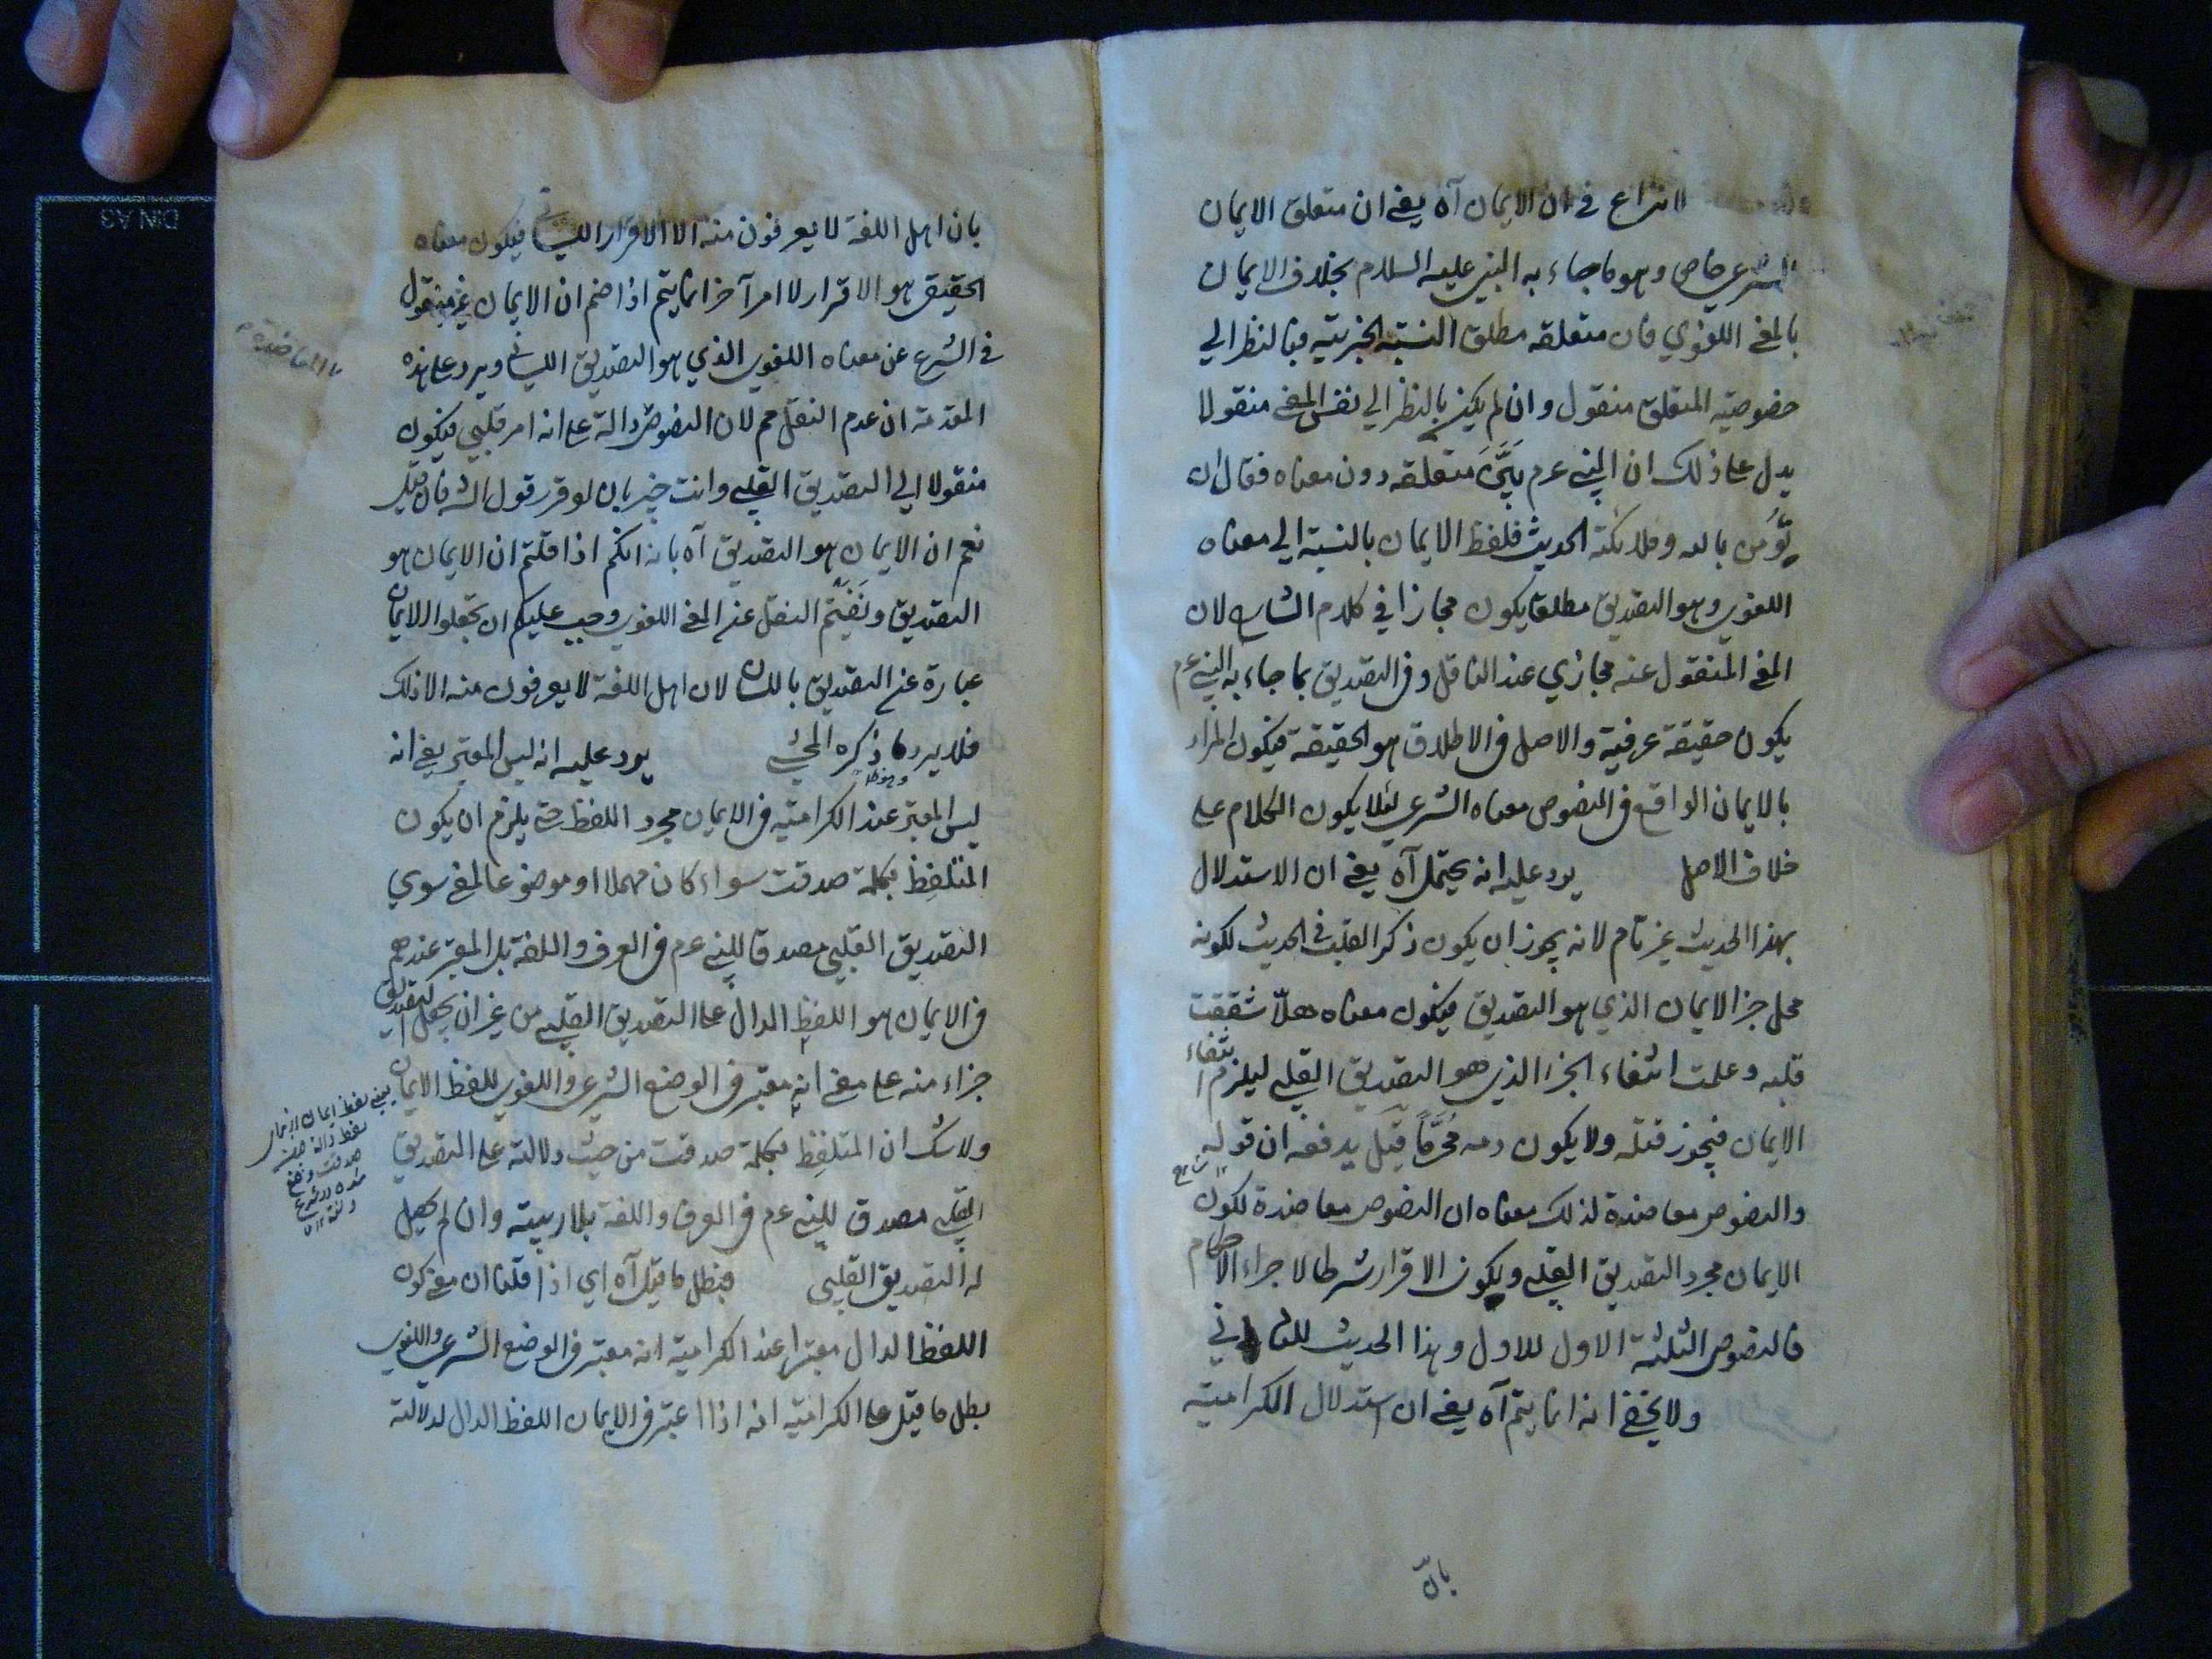 لا نزاع في ان الايمان آه يعني ان متعلق الايمان
الشرعي خاص وهو ما جاء به النبي عليه السلام بخلاف الايمان
بالمعنى اللغوي فان متعلقه مطلق النسبة الخبرية فبالنظر الي
خصوصية المتعلق منقول وان لم يكن بالنظر الي نفس المعنى منقولا
يدل على ذلك ان النبي عرم بَيَّنَ متعلقه دون معناه فقال ان
تؤمن بالله وملائكته الحديث فلفظ الايمان بالنسبة الي معناه
اللغوي وهو التصديق مطلقا يكون مجازا في كلام الشارع لان
المعنى المنقول عنه مجازي عند الناقل وفي التصديق بما جاء به النبي عرم
يكون حقيقة عرفية والاصل في الاطلاق هو الحقيقة فيكون المراد
بالايمان الواقع في النصوص معناه الشرعي لئلا يكون الكلام على
خلاف الاصل يرد عليه انه يحتمل آه يعني ان الاستدلال
بهذا الحديث غير تام لانه يجوز ان يكون ذكر القلب في الحديث لكونه
محل جزء الايمان الذي هو التصديق فيكون معناه هلّا شققت
قلبه وعلمت انتفاء الجزء الذي هو التصديق القلبي ليلزم انتفاء
الايمان فيجوز قتله ولا يكون دمه مُحَرَّمًا قبل يدفعه ان قوله
والنصوص معاضدة لذلك معناه ان النصوص معاضدة لكون
الايمان مجرد التصديق القلبي ويكون الاقرار شرطا لاجراء الاحكام
فالنصوص الثلثة الاول للاول وهذا الحديث للثاني
ولا يخفى انه انما يتم آه يعني ان استدلال الكرامية
بان
بان اهل اللغة لا يعرفون منه الا الاقرار اللساني فيكون معناه
الحقيقي هو الاقرار لا امرا آخر انما يتم اذا ضم ان الايمان غير منقول
في الشرع عن معناه اللغوي الذي هو التصديق اللساني ويرد على هذه
المقدمة ان عدم النقل مم لان النصوص دالة على انه امر قلبي فيكون
منقولا الي التصديق القلبي وانت خبير بان لو قرر قول الش فان قيل
نعم ان الايمان هو التصديق آه بانه انكم اذا قلتم ان الايمان هو
التصديق ونَفَيتُم النقل عن المعنى اللغوي وجب عليكم ان تجعلوا الايمان
عبارة عن التصديق باللسان لان اهل اللغة لا يعرفون منه الا ذلك
فلا يرد ما ذكره المحشي يرد عليه انه ليس المعتبر يعني انه
ليس المعتبر عند الكرامية في الايمان مجرد اللفظ حتى يلزم ان يكون
المتلفظ بكلمة صدقت سواء كان مهملا او موضوعا لمعنى سوي
التصديق القلبي مصدقا للنبي عرم في العرف واللغة بل المعتبر عندهم
في الايمان هو اللفظ الدال على التصديق القلبي من غير ان يجعل التصديق
جزاء منه على معنى انه معتبر في الوضع الشرعي واللغوي للفظ الايمان
ولا شك ان المتلفظ بكلمة صدقت من حيث دلالته على التصديق
القلبي مصدق للنبي عرم في العرف واللغة بلا ريبة وان لم يحصل
له التصديق القلبي فبطل ما قيل آه اي اذا قلنا ان معنى كون
اللفظ الدال معتبرا عند الكرامية انه معتبر في الوضع الشرعي واللغوي
بطل ما قيل على الكرامية انه اذا اعتبر في الايمان اللفظ الدال لدلالته